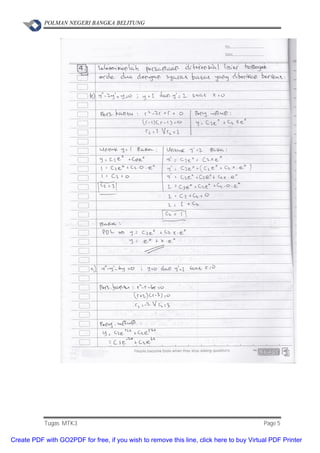 POLMAN NEGERI BANGKA BELITUNG
No.
Date.
4.) Selesaikanlah persamaan diferensial linier homogen
orde dua dengan syarat batas yang diberikan berikut:
b) y''-2y'+y=0 ; y=1 dan y'=2 saat x=0
Pers. karak : r²-2r+1=0
(r-1)(r-1)=0
r₁=1 V r₂=1
Peny. umum :
y = C₁e^x + C₂.xe^x
Untuk y=1 maka :
y = C₁e^x + C₂xe^x
1 = C₁e^0 + C₂.0.e^0
1 = C₁ + 0
C₁ = 1
Untuk y'=2 maka :
y' = C₁e^x + C₂xe^x
y' = C₁e^x + (C₂e^x + C₂x.e^x)
y' = C₁e^x + C₂e^x + C₂x.e^x
2 = C₁e^0 + C₂e^0 + C₂.0.e^0
2 = C₁ + C₂ + 0
2 = 1 + C₂
C₂ = 1
Maka :
PDL => y = C₁e^x + C₂x.e^x
y = e^x + x.e^x
c) y''-y'-6y=0 ; y=0 dan y'=1 saat x=0
Pers. karak : r²-r-6=0
(r+2)(r-3)=0
r₁=-2 V r₂=3
Peny. umum :
y = C₁e^r₁x + C₂e^r₂x
= C₁e^-2x + C₂e^3x
People become fools when they stop asking questions
Tugas MTK3
Page 5
Create PDF with GO2PDF for free, if you wish to remove this line, click here to buy Virtual PDF Printer